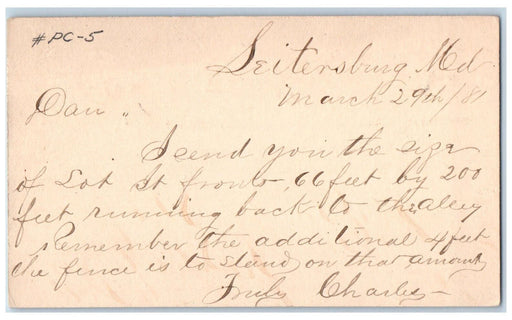 #PC-5
Leitersburg Md
March 29th/81
Dan,
I send you the size
of Lot it fronts, 66 feet by 200
feet running back to the alley
Remember the additional 4 feet
the fence is to stand on that amount
Truly Charles